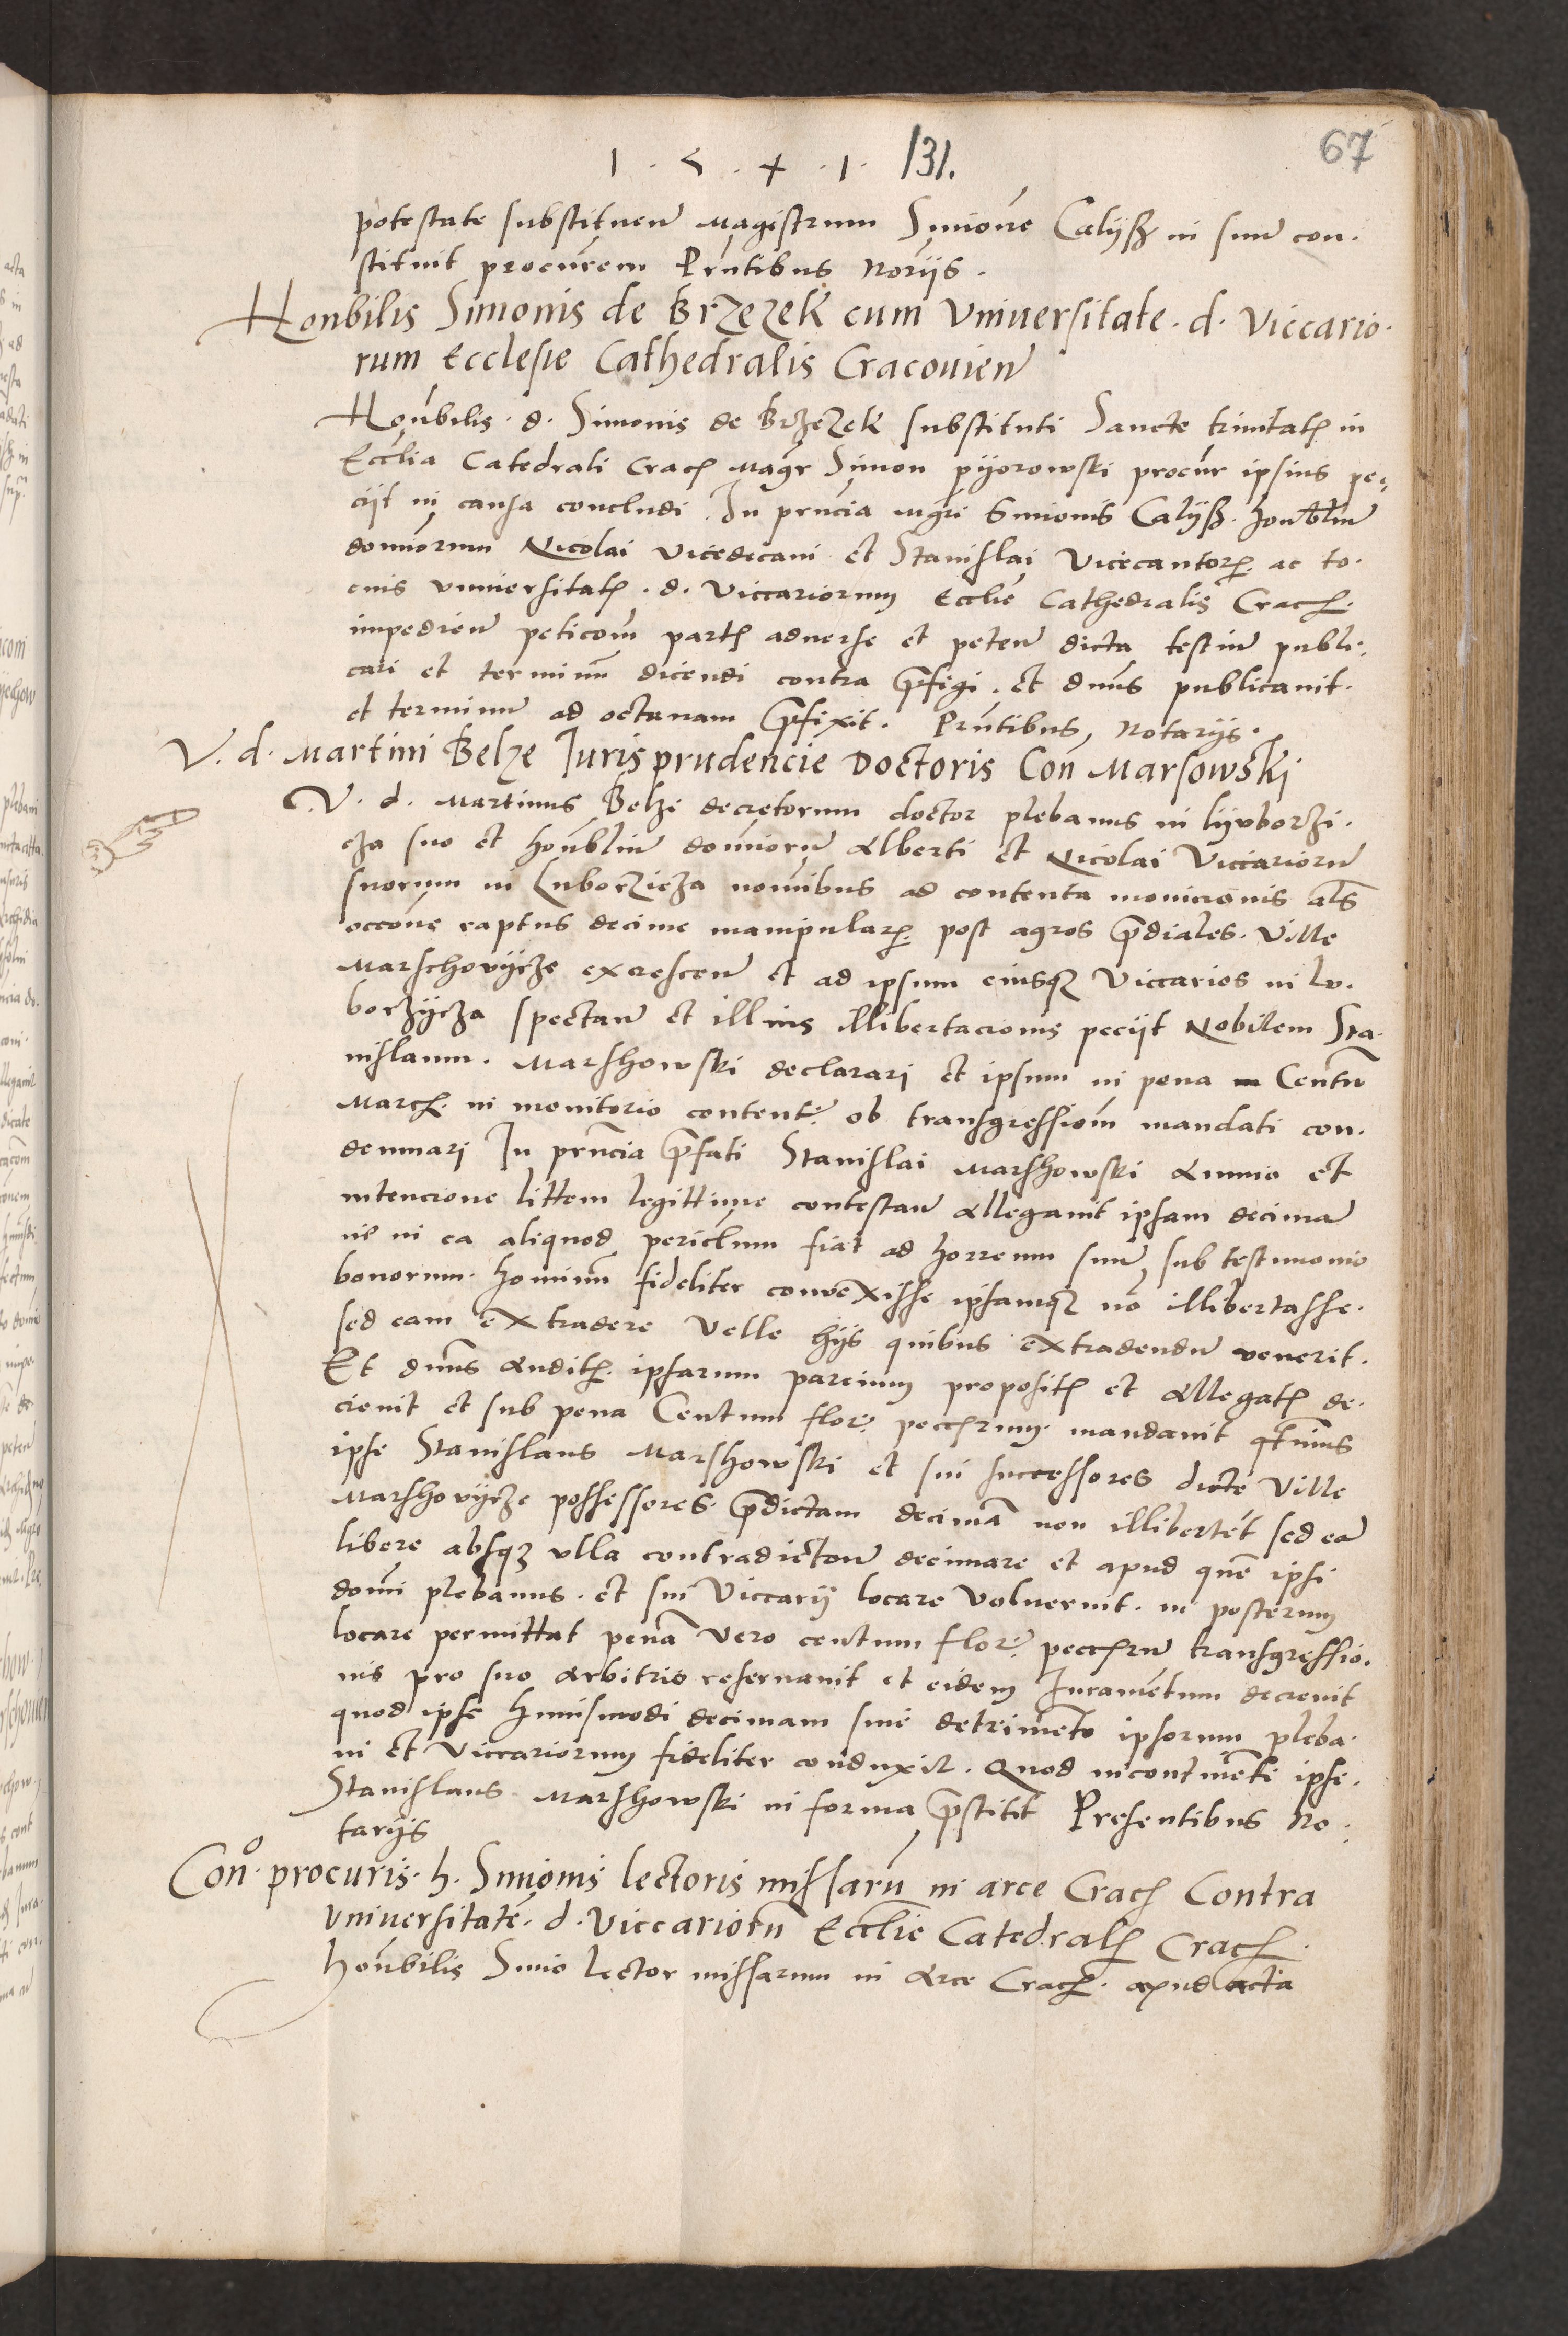 1 . 5 . 4 . 1 . 131.
67
potestate substituen̄ magistrum Simonē Calyß in suū con.
stituit procūrem Prntibus Norijs.
Honbilis Simonis de Brzezek cum Vniuersitate . d . viccario.
rum Ecclesie Cathedralis Cracouien̄
Honbilis . d . Simonis de Brzezek substituti Sancte trinitatꝭ in
Ecclia Catedrali Cracꝭ Magr Simon pyorowski procur ipsius pe,
cijt in causa concludi . In prncia mgri Simonis Calyß . honbliū
dominorum Nicolai vicedecani et Stanislai Vicecantorꝭ ac to.
cius vniuersitatꝭ . d . viccariorum Ecclie Cathedralis Cracꝭ.
impedien̄ peticom̄ partꝭ aduerse et peten̄ dicta testiū publi,
cari et terminum̄ dicendi contra p̄figi . et dnus publicauit.
et terminū ad octauam p̄fixit . Prntibus, Notarijs.
V. d. Martini Belze Iurisprudencie Doctoris Con̄ Marsowski
V. d. Martinus Belze decretorum doctor plebanus in lyuborzi.
cza suo et honbliū dominorū Alberti et Nicolai viccariorū
suorum in Luborzicza nomībus ad contenta monicionis als
occōne raptus decime manipularꝭ post agros p̄diales . Ville
Marschovycze excrescen̄ et ad ipsum eiusqꝫ viccarios in lu.
borzycza spectan̄ et illius illibertacionis pecijt Nobilem Sta.
nislaum . Marshowski declarari et ipsum in pena Centū
Marcꝭ . in monitorio contentꝭ ob transgressiom̄ mandati con.
demnari In prncia p̄fati Stanislai Marshowski Animo et
intencione littem legittime contestan̄ Allegauit ipsam decimā
ne in ea aliquod periclum fiat ad horreum suū sub testimonio
bonorum . hominum̄ fideliter convexisse ipsamqꝫ nō illibertasse.
sed eam extradere Velle hijs quibus extradendū venerit.
Et dnus Auditꝭ ipsarum parcium propositꝭ et Allegatꝭ de.
creuit et sub pena Centum flor. peccꝭrum mandauit q̄tenus
ipse Stanislaus Marshowski et sui successores dicte ville
Marshovycze possessores . p̄dictam decimā non illibertēt sed eā
libere absqꝫ vlla contradictōne decimare et apud quē ipsi
domī plebanus . et sui Viccarij locare voluerint . in posterum
locare permittat penā vero centum flor. peccꝭrū transgressio.
nis pro suo Arbitrio reseruauit et eidem Iuramentum decreuit
quod ipse huiusmodi decimam sine detrimento ipsorum pleba.
ni et viccariorum fideliter conduxit . Quod incontinēti ipse.
Stanislaus Marshowski in forma p̄stitit Presentibus No.
tarijs
Con̊ . procuris . h . Simonis lectoris missarū in arce Cracꝭ Contra
Vniuersitatē . d . Viccariorū Ecclie Catedralꝭ Cracꝭ.
Honbilis Simo lector missarum in Arce Cracꝭ . apud acta